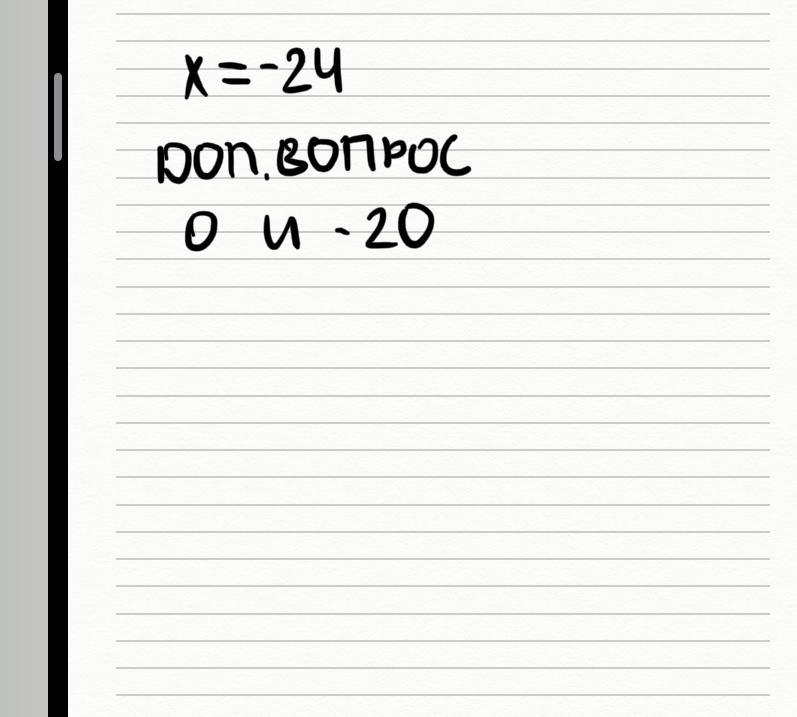 x = -24
Доп. вопрос
0 и -20